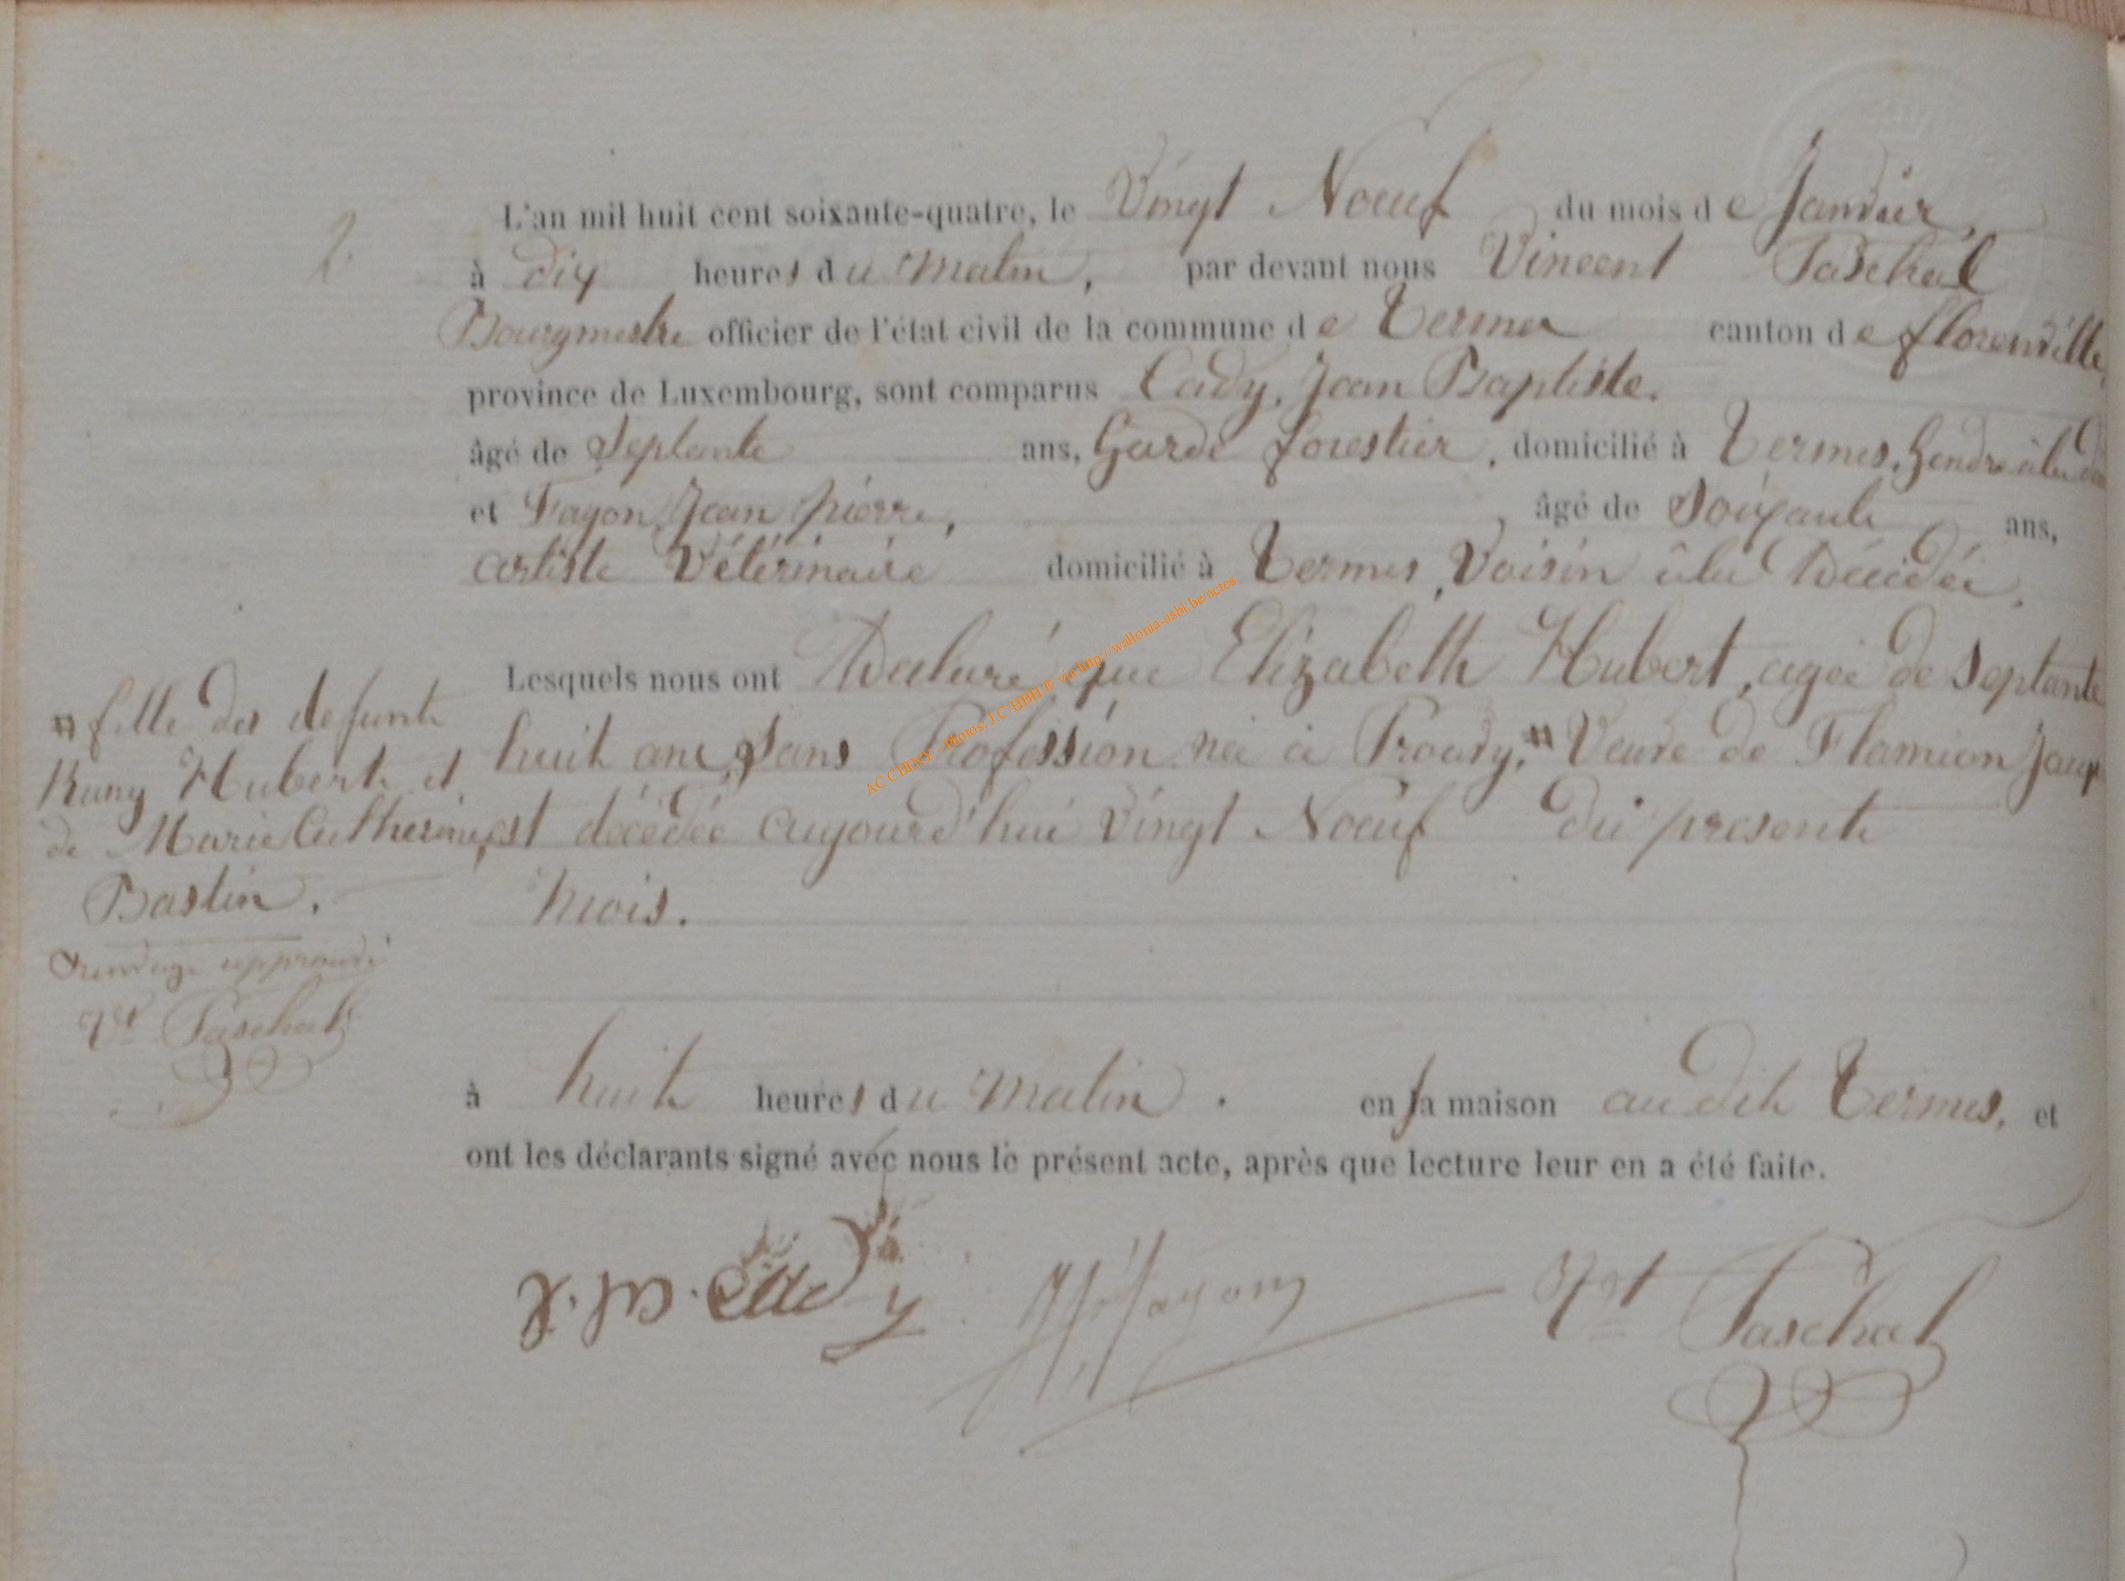 2
L'an mil huit cent soixante-quatre, le Vingt Noeuf du mois de Janvier,
à dix heures du matin, par devant nous Vincent Paschal
Bourgmestre officier de l'état civil de la commune de Termes canton de florenville,
province de Luxembourg, sont comparus Cady, Jean Baptiste.
âgé de Septante ans, Garde forestier, domicilié à Termes, Gendre à la
et Fayon, Jean pierre, âgé de Soixante ans,
artiste Vétérinaire domicilié à Termes, Voisin à la Décédée,
Lesquels nous ont Declaré que Elizabeth Hubert, agée de Septante
huit ans, Sans Profession née à Prouvy, # Veuve de Flamion
est décédée aujourd'hui Vingt Noeuf du presente
mois.
# fille des defunts
Hubert et
de Marie Catherine
Bastin.
approuvé
Vt Paschal
à huit heures du matin. en sa maison audit Termes, et
ont les déclarants signé avec nous le présent acte, après que lecture leur en a été faite.
J. B. Cady
JP Fayon
Vt Paschal
AC CHINY - Photos: LC/HBH.fr via http://wallonia-asbl.be/actes